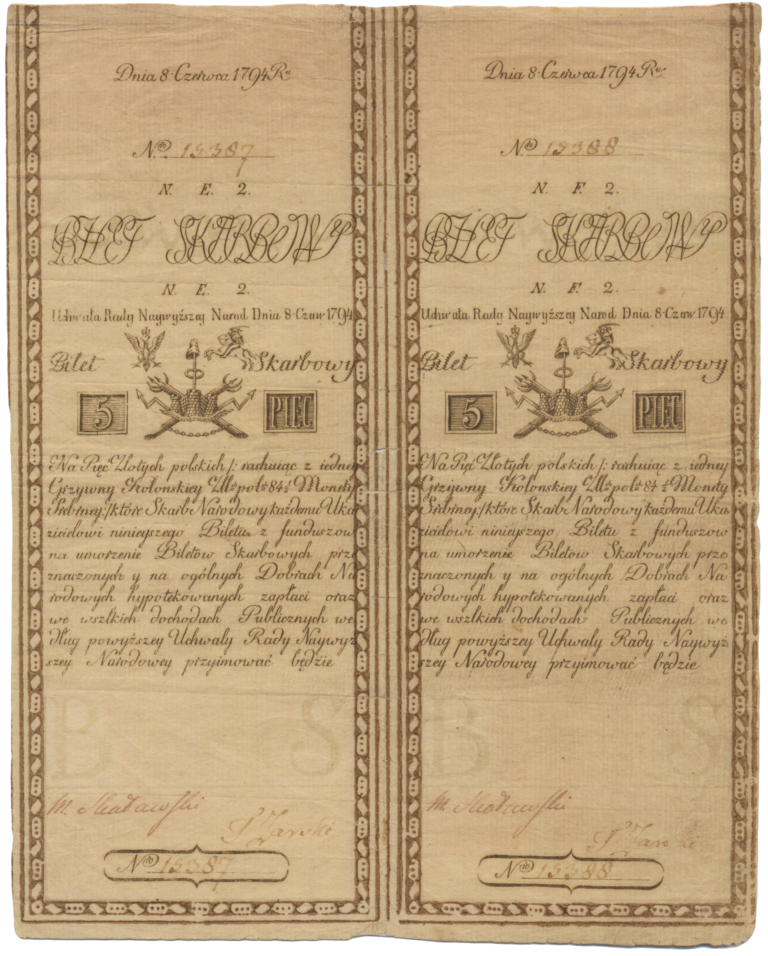 Dnia 8 Czerwca 1794 Ru
No. 15387
N. E. 2.
BILET SKARBOWY
N. E. 2.
Uchwała Rady Naywyższey Narod Dnia 8 Czerw 1794
Bilet Skarbowy
5 PIĘĆ
Na Pięć Złotych polskich /: rachuiąc z iedney
Grzywny Kolonskiey Złł: pol: 84½ Monety
Srebrney :/ które Skarb Narodowy każdemu Oka
zicielowi ninieyszego Biletu z funduszow
na umorzenie Biletów Skarbowych prze
znaczonych y na ogólnych Dobrach Na
rodowych hypotekowanych zapłaci oraz
we wszlkich dochodach Publicznych we
dług powyższey Uchwały Rady Naywyż
szey Narodowey przyimować będzie
B S
M. Skaławski
P Zarski
No 15387
Dnia 8 Czerwca 1794 Ru
No. 15388
N. F. 2.
BILET SKARBOWY
N. F. 2.
Uchwała Rady Naywyższey Narod Dnia 8 Czerw 1794
Bilet Skarbowy
5 PIĘĆ
Na Pięć Złotych polskich /: rachuiąc z iedney
Grzywny Kolonskiey Złł: pol: 84½ Monety
Srebrney :/ które Skarb Narodowy każdemu Oka
zicielowi ninieyszego Biletu z funduszow
na umorzenie Biletów Skarbowych prze
znaczonych y na ogólnych Dobrach Na
rodowych hypotekowanych zapłaci oraz
we wszlkich dochodach Publicznych we
dług powyższey Uchwały Rady Naywyż
szey Narodowey przyimować będzie
B S
M. Skaławski
P Zarski
No 15388